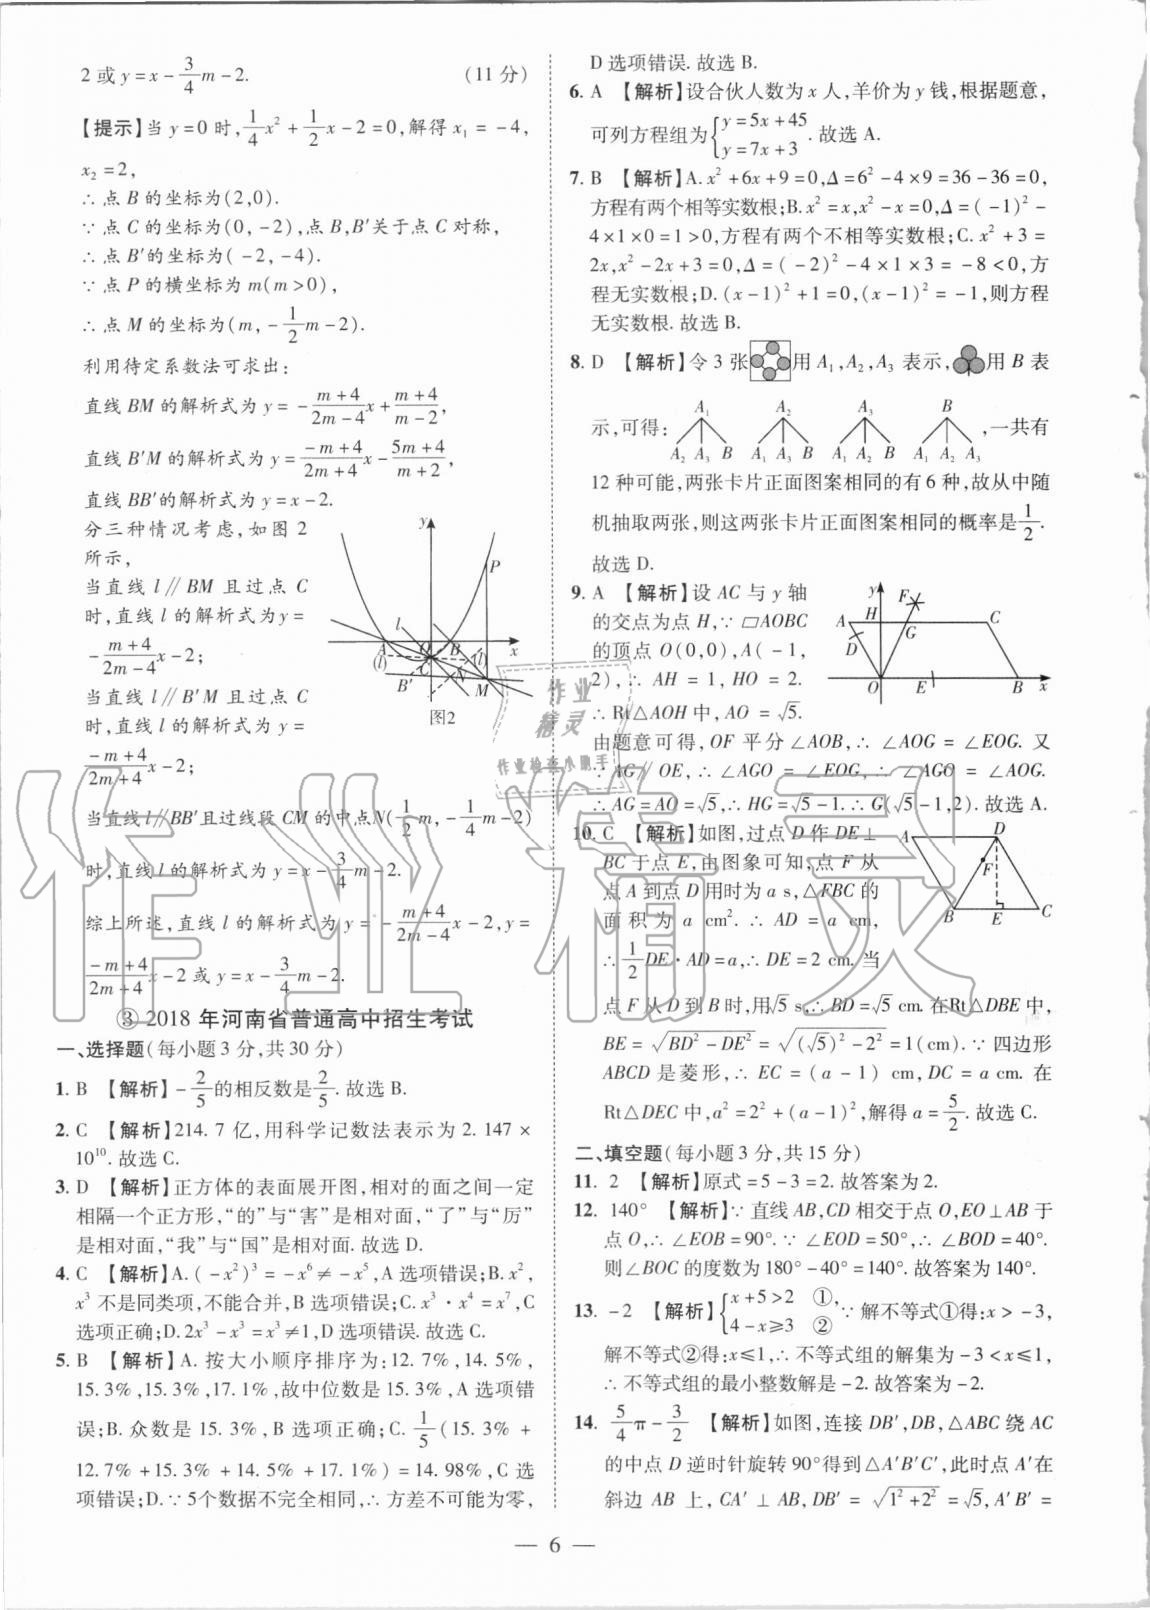 2或y=x-3/4m-2. (11分)
【提示】当y=0时,1/4x²+1/2x-2=0,解得x₁=-4,
x₂=2,
∴点B的坐标为(2,0).
∵点C的坐标为(0,-2),点B,B′关于点C对称,
∴点B′的坐标为(-2,-4).
∵点P的横坐标为m(m>0),
∴点M的坐标为(m,-1/2m-2).
利用待定系数法可求出:
直线BM的解析式为y=-(m+4)/(2m-4)x+(m+4)/(m-2),
直线B′M的解析式为y=(-m+4)/(2m+4)x-(5m+4)/(m+2),
直线BB′的解析式为y=x-2.
分三种情况考虑,如图2
所示,
当直线l∥BM且过点C
时,直线l的解析式为y=
-(m+4)/(2m-4)x-2;
当直线l∥B′M且过点C
时,直线l的解析式为y=
(-m+4)/(2m+4)x-2;
y P l A O B x (l) (l) C N B′ M
图2
当直线l∥BB′且过线段CM的中点N(1/2m,-1/4m-2)
时,直线l的解析式为y=x-3/4m-2.
综上所述,直线l的解析式为y=-(m+4)/(2m-4)x-2,y=
(-m+4)/(2m+4)x-2或y=x-3/4m-2.
③ 2018年河南省普通高中招生考试
一、选择题(每小题3分,共30分)
1. B 【解析】-2/5的相反数是2/5.故选B.
2. C 【解析】214.7亿,用科学记数法表示为2.147×
10¹⁰.故选C.
3. D 【解析】正方体的表面展开图,相对的面之间一定
相隔一个正方形,“的”与“害”是相对面,“了”与“厉”
是相对面,“我”与“国”是相对面.故选D.
4. C 【解析】A.(-x²)³=-x⁶≠-x⁵,A选项错误;B.x²,
x³不是同类项,不能合并,B选项错误;C.x³·x⁴=x⁷,C
选项正确;D.2x³-x³=x³≠1,D选项错误.故选C.
5. B 【解析】A.按大小顺序排序为:12.7%,14.5%,
15.3%,15.3%,17.1%,故中位数是15.3%,A选项错
误;B.众数是15.3%,B选项正确;C.1/5(15.3%+
12.7%+15.3%+14.5%+17.1%)=14.98%,C选
项错误;D.∵5个数据不完全相同,∴方差不可能为零,
D选项错误.故选B.
6. A 【解析】设合伙人数为x人,羊价为y钱,根据题意,
可列方程组为{y=5x+45
y=7x+3.故选A.
7. B 【解析】A.x²+6x+9=0,Δ=6²-4×9=36-36=0,
方程有两个相等实数根;B.x²=x,x²-x=0,Δ=(-1)²-
4×1×0=1>0,方程有两个不相等实数根;C.x²+3=
2x,x²-2x+3=0,Δ=(-2)²-4×1×3=-8<0,方
程无实数根;D.(x-1)²+1=0,(x-1)²=-1,则方程
无实数根.故选B.
8. D 【解析】令3张用A₁,A₂,A₃表示,用B表
A₁ A₂ A₃ B
示,可得: ,一共有
A₂ A₃ B A₁ A₃ B A₁ A₂ B A₁ A₂ A₃
12种可能,两张卡片正面图案相同的有6种,故从中随
机抽取两张,则这两张卡片正面图案相同的概率是1/2.
故选D.
9. A 【解析】设AC与y轴
的交点为点H,∵▱AOBC
的顶点O(0,0),A(-1,
2),∴AH=1,HO=2.
∴Rt△AOH中,AO=√5.
y F A H G C D O E B x
由题意可得,OF平分∠AOB,∴∠AOG=∠EOG.又
∵AG∥OE,∴∠AGO=∠EOG,∴∠AGO=∠AOG.
∴AG=AO=√5,∴HG=√5-1.∴G(√5-1,2).故选A.
10. C 【解析】如图,过点D作DE⊥
BC于点E,由图象可知,点F从
点A到点D用时为a s,△FBC的
面积为a cm².∴AD=a cm,
∴1/2DE·AD=a,∴DE=2 cm.当
A D F B E C
点F从D到B时,用√5 s,∴BD=√5 cm.在Rt△DBE中,
BE=√(BD²-DE²)=√((√5)²-2²)=1(cm).∵四边形
ABCD是菱形,∴EC=(a-1) cm,DC=a cm.在
Rt△DEC中,a²=2²+(a-1)²,解得a=5/2.故选C.
二、填空题(每小题3分,共15分)
11. 2 【解析】原式=5-3=2.故答案为2.
12. 140° 【解析】∵直线AB,CD相交于点O,EO⊥AB于
点O,∴∠EOB=90°.∵∠EOD=50°,∴∠BOD=40°.
则∠BOC的度数为180°-40°=140°.故答案为140°.
13. -2 【解析】{x+5>2 ①,
4-x≥3 ② ∵解不等式①得:x>-3,
解不等式②得:x≤1,∴不等式组的解集为-3<x≤1,
∴不等式组的最小整数解是-2.故答案为-2.
14. 5/4π-3/2 【解析】如图,连接DB′,DB,△ABC绕AC
的中点D逆时针旋转90°得到△A′B′C′,此时点A′在
斜边AB上,CA′⊥AB,DB′=√(1²+2²)=√5,A′B′=
— 6 —
作业精灵
作业
精灵
作业检查小助手